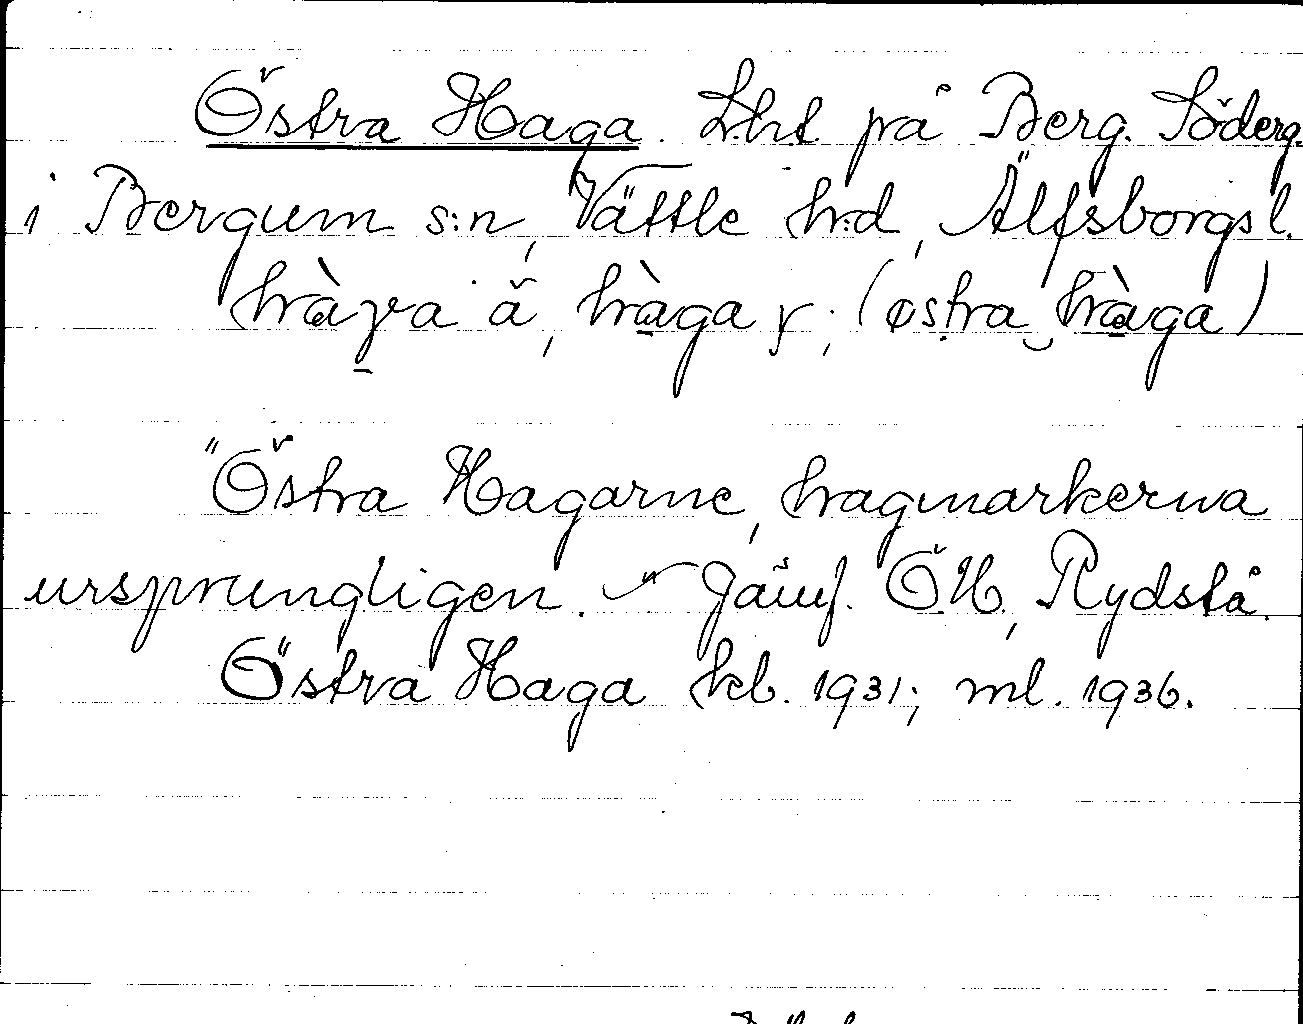 Östra Haga. Lht på Berg. Söderg.
i Bergum s:n, Vättle h:d, Älfsborgs l.
hàga ä, hàga y; (østra hàga)
"Östra Hagarne, hagmarkerna
ursprungligen." Jämf. ÖH, Rydstå.
Östra Haga kb. 1931; ml. 1936.